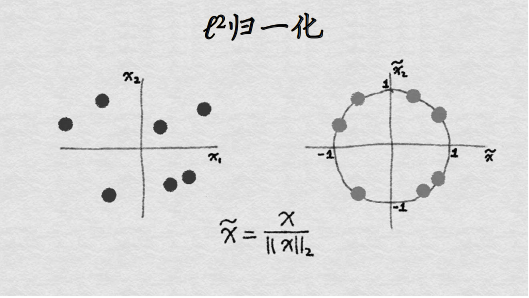 ℓ²归一化
x₂
x₁
x̃₂
1
-1
1
x̃
-1
x̃ = x / ||x||₂